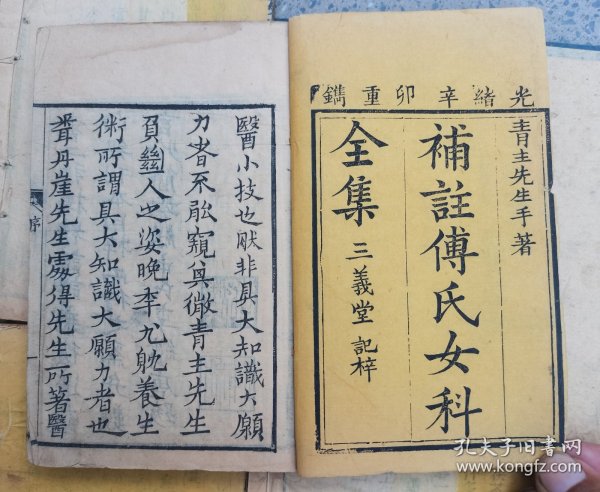 光緒辛卯重鐫
青主先生手著
補註傅氏女科
全集 三義堂記梓
醫小技也肰非具大知識大願
力者不能窺奥微青主先生
負幽人之姿晚季尤躭養生
術所謂具大知識大願力者也
丹崖先生處得先生所著醫
序
孔夫子旧书网
www.kongfz.com